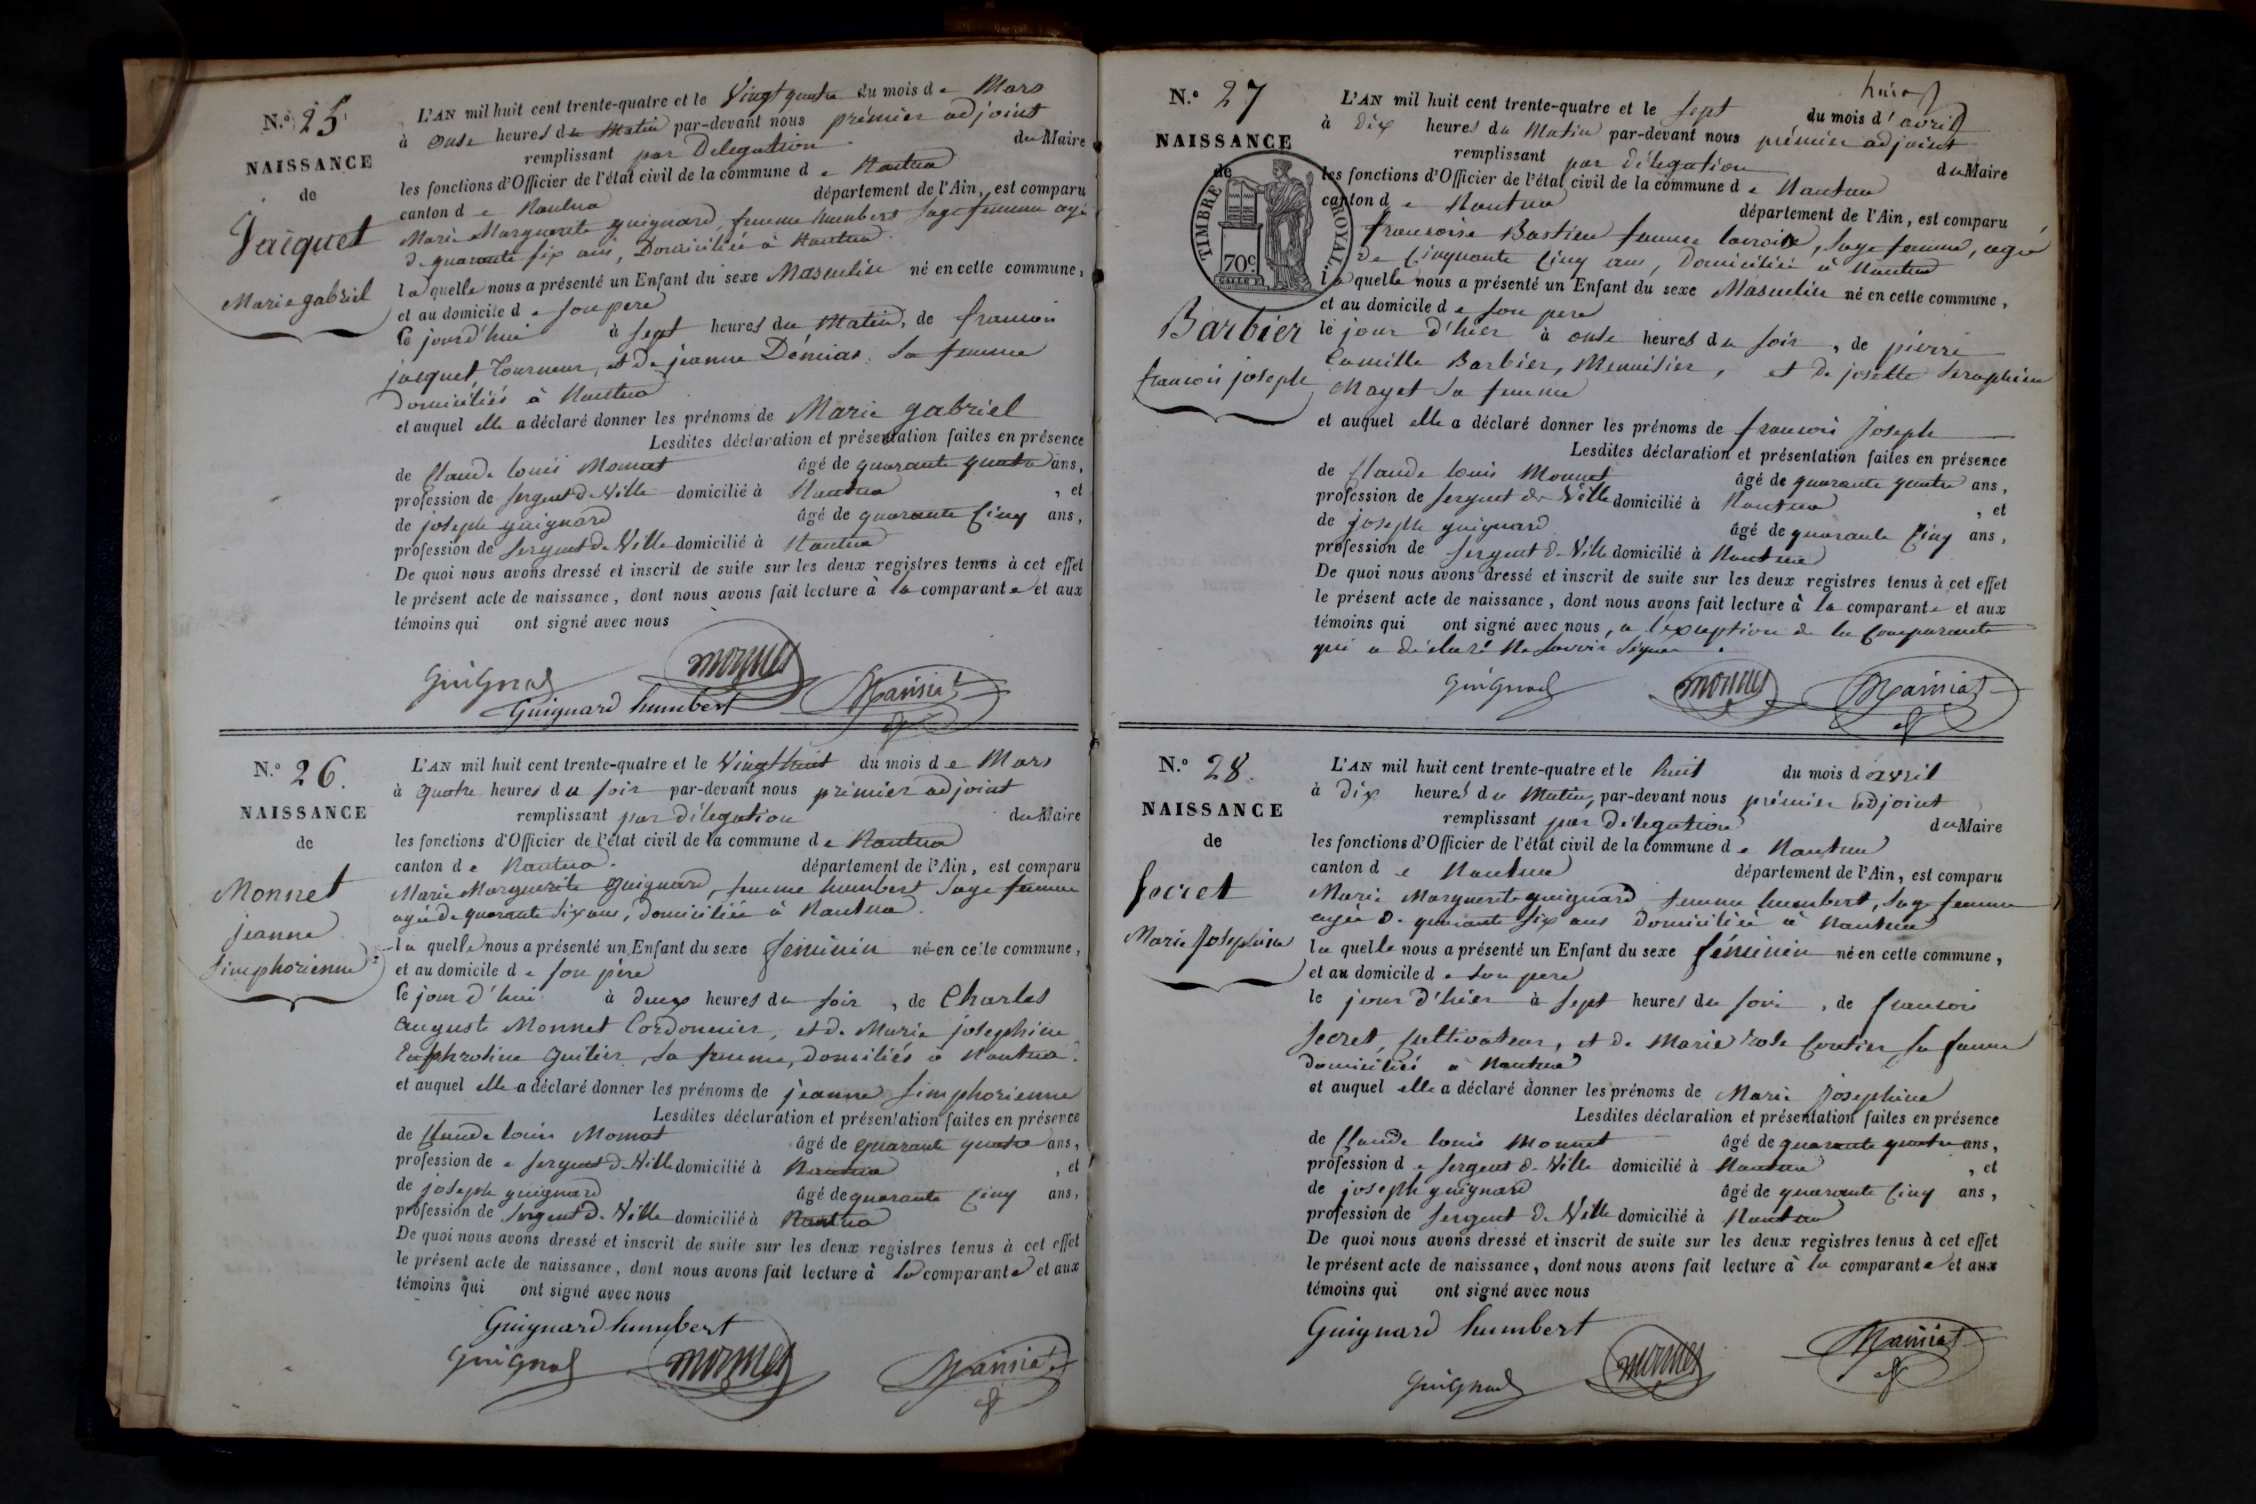 N.º 25
NAISSANCE
de
Jacquet
Marie gabriel
L'AN mil huit cent trente-quatre et le Vingt quatre du mois de Mars
à onse heures du Matin par-devant nous prémier adjoint
remplissant par Delegation du Maire
les fonctions d'Officier de l'état civil de la commune de Nantua
canton de Nantua département de l'Ain, est comparu
Marie Marguerite guignard, femme humbert Sage femme agé
de quarante six ans, Domiciliée à Nantua.
laquelle nous a présenté un Enfant du sexe Masculin né en cette commune,
et au domicile de son pere
Ce jourd'hui à sept heures du Matin, de francois
jacquet, tourneur, et de jeanne Démias, sa femme
domiciliés à Nantua
et auquel elle a déclaré donner les prénoms de Marie gabriel
Lesdites déclaration et présentation faites en présence
de Claude louis Monnet âgé de quarante quatre ans,
profession de sergent de Ville domicilié à Nantua, et
de joseph guignard âgé de quarante cinq ans,
profession de Sergent de Ville domicilié à Nantua
De quoi nous avons dressé et inscrit de suite sur les deux registres tenus à cet effet
le présent acte de naissance, dont nous avons fait lecture à la comparante et aux
témoins qui ont signé avec nous
Guignard monnet
Guignard humbert Mainiat
N.º 26.
NAISSANCE
de
Monnet
jeanne
simphorienne
L'AN mil huit cent trente-quatre et le Vingt huit du mois de Mars
à quatre heures du soir par-devant nous prémier adjoint
remplissant par délégation du Maire
les fonctions d'Officier de l'état civil de la commune de Nantua
canton de Nantua. département de l'Ain, est comparu
Marie Marguerite guignard, femme humbert Sage femme
agée de quarante six ans, domiciliée à Nantua.
laquelle nous a présenté un Enfant du sexe féminin né en cette commune,
et au domicile de son père
Ce jour d'hui à deux heures du soir, de Charles
auguste Monnet Cordonnier, et de Marie josephine
Euphrosine Guitier, sa femme, domiliés à Nantua.
et auquel elle a déclaré donner les prénoms de jeanne simphorienne
Lesdites déclaration et présentation faites en présence
de Claude louis Monnet âgé de quarante quatre ans,
profession de sergent de Ville domicilié à Nantua, et
de joseph guignard âgé de quarante cinq ans,
profession de sergent de Ville domicilié à Nantua
De quoi nous avons dressé et inscrit de suite sur les deux registres tenus à cet effet
le présent acte de naissance, dont nous avons fait lecture à la comparante et aux
témoins qui ont signé avec nous
Guignard humbert
Guignard monnet Mainiat
N.º 27
NAISSANCE
de
TIMBRE ROYAL.
70c
Barbier
francois joseph
L'AN mil huit cent trente-quatre et le sept du mois d'avril
à dix heures du Matin par-devant nous prémier adjoint
remplissant par délégation du Maire
les fonctions d'Officier de l'état civil de la commune de Nantua
canton de Nantua département de l'Ain, est comparu
francoise Bastien femme lavroise, sage femme, agée
de Cinquante Cinq ans, domiciliée à Nantua
laquelle nous a présenté un Enfant du sexe Masculin né en cette commune,
et au domicile de son pere
le jour d'hier à onse heures du soir, de pierre
Camille Barbier, Menuisier, et de josette Seraphine
Mayet sa femme
et auquel elle a déclaré donner les prénoms de francois Joseph
Lesdites déclaration et présentation faites en présence
de Claude louis Monnet âgé de quarante quatre ans,
profession de sergent de Ville domicilié à Nantua, et
de joseph guignard âgé de quarante Cinq ans,
profession de sergent de Ville domicilié à Nantua
De quoi nous avons dressé et inscrit de suite sur les deux registres tenus à cet effet
le présent acte de naissance, dont nous avons fait lecture à la comparante et aux
témoins qui ont signé avec nous, a l'exception de la Comparante
qui a déclaré Ne savoir signer.
Guignard monnet Mainiat
N.º 28.
NAISSANCE
de
Secret
Marie Josephine
L'AN mil huit cent trente-quatre et le huit du mois d'avril
à dix heures du Matin, par-devant nous prémier adjoint
remplissant par délégation du Maire
les fonctions d'Officier de l'état civil de la commune de Nantua
canton de Nantua département de l'Ain, est comparu
Marie Marguerite guignard femme humbert, sage femme
agée de quarante six ans domiciliée à Nantua
laquelle nous a présenté un Enfant du sexe féminin né en cette commune,
et au domicile de son pere
le jour d'hier à sept heures du soir, de francois
Secret, Cultivateur, et de Marie rose Coutier sa femme
domiciliés à Nantua
et auquel elle a déclaré donner les prénoms de Marie Josephine
Lesdites déclaration et présentation faites en présence
de Claude louis Monnet âgé de quarante quatre ans,
profession de Sergent de Ville domicilié à Nantua, et
de joseph guignard âgé de quarante Cinq ans,
profession de sergent de Ville domicilié à Nantua
De quoi nous avons dressé et inscrit de suite sur les deux registres tenus à cet effet
le présent acte de naissance, dont nous avons fait lecture à la comparante et aux
témoins qui ont signé avec nous
Guignard humbert
Guignard monnet Mainiat